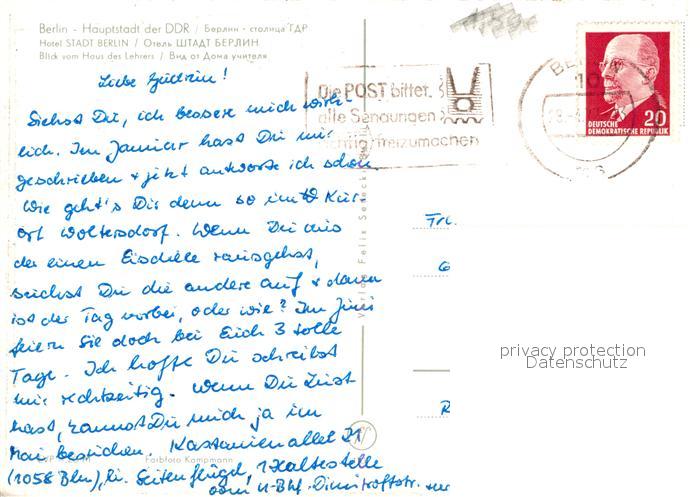 Berlin - Hauptstadt der DDR / Берлин - столица ГДР
Hotel STADT BERLIN / Отель ШТАДТ БЕРЛИН
Blick vom Haus des Lehrers / Вид от Дома учителя
Liebe
Siehst Du, ich bessere mich wirk-
lich. Im Januar hast Du mir
geschrieben + jetzt antworte ich schon
Wie geht's Dir denn so im Kur-
ort Woltersdorf. Wenn Du aus
der einen Eisdiele rausgehst,
suchst Du die andere auf + dann
ist der Tag vorbei, oder wie? Im Juni
feiern Sie doch bei Euch 3 tolle
Tage. Ich hoffe Du schreibst
mir rechtzeitig. Wenn Du Lust
hast, kannst Du mich ja im
Mai besuchen. Kastanienallee 21
(1058 Bln), li. Seitenflügel, 1 Haltestelle
vom U-Bhf. Dimitroffstr.
Farbfoto Kampmann
Verlag Felix
Die POST bittet:
alle Sendungen
richtig freizumachen
BERLIN
DEUTSCHE
DEMOKRATISCHE REPUBLIK
20
privacy protection
Datenschutz